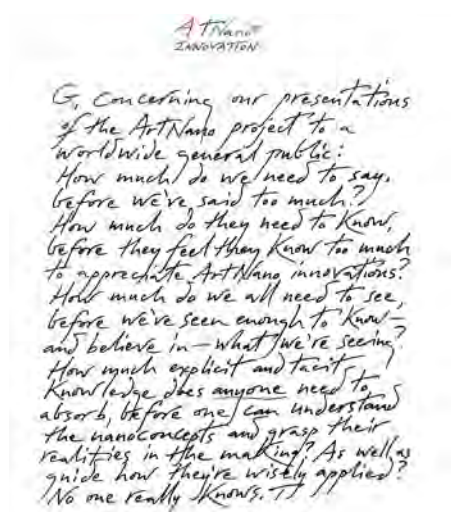 ArtNano
INNOVATION
G, Concerning our presentations
of the ArtNano project to a
worldwide general public:
How much do we need to say,
before we've said too much?
How much do they need to know,
before they feel they know too much
to appreciate ArtNano innovations?
How much do we all need to see,
before we've seen enough to know—
and believe in—what we're seeing?
How much explicit and tacit
knowledge does anyone need to
absorb, before one can understand
the nanoconcepts and grasp their
realities in the making? As well as
guide how they're wisely applied?
No one really knows.